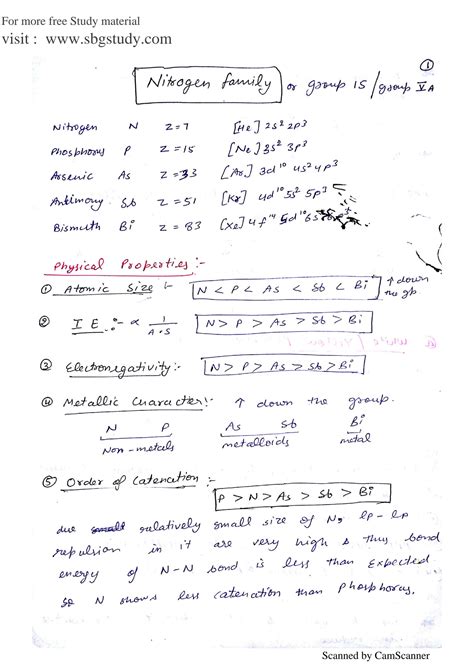 For more free Study material
visit : www.sbgstudy.com
①
Nitrogen family or group 15 / group V A
Nitrogen N Z=7 [He] 2s² 2p³
Phosphorus P Z=15 [Ne] 3s² 3p³
Arsenic As Z=33 [Ar] 3d¹⁰ 4s² 4p³
Antimony Sb Z=51 [Kr] 4d¹⁰ 5s² 5p³
Bismuth Bi Z=83 [Xe] 4f¹⁴ 5d¹⁰ 6s²
Physical Properties :-
① Atomic Size :- N < P < As < Sb < Bi ↑ down the gp
② I E :- ∝ 1/A.S N > P > As > Sb > Bi
③ Electronegativity :- N > P > As > Sb > Bi
④ Metallic Character :- ↑ down the group.
N P As Sb Bi
Non-metals metalloids metal
⑤ Order of Catenation :-
P > N > As > Sb > Bi
due relatively small size of N, lp - lp
repulsion in it are very high & thus bond
energy of N-N bond is less than expected
so N shows less catenation than phosphorus.
Scanned by CamScanner